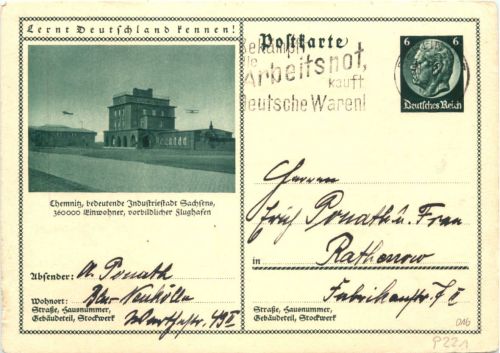 Lernt Deutschland kennen!
Postkarte
Bekämpft
die
Arbeitsnot,
kauft
deutsche Waren!
6 6
Deutsches Reich
Chemnitz, bedeutende Industriestadt Sachsens,
360000 Einwohner, vorbildlicher Flughafen
Herren
Erich Ponath u. Frau
in Rathenow
Fabrikenstr. 7 II
Absender: A. Ponath
Wohnort: Bln-Neukölln
Straße, Hausnummer,
Gebäudeteil, Stockwerk
Warthestr. 49 II
Straße, Hausnummer,
Gebäudeteil, Stockwerk
P221